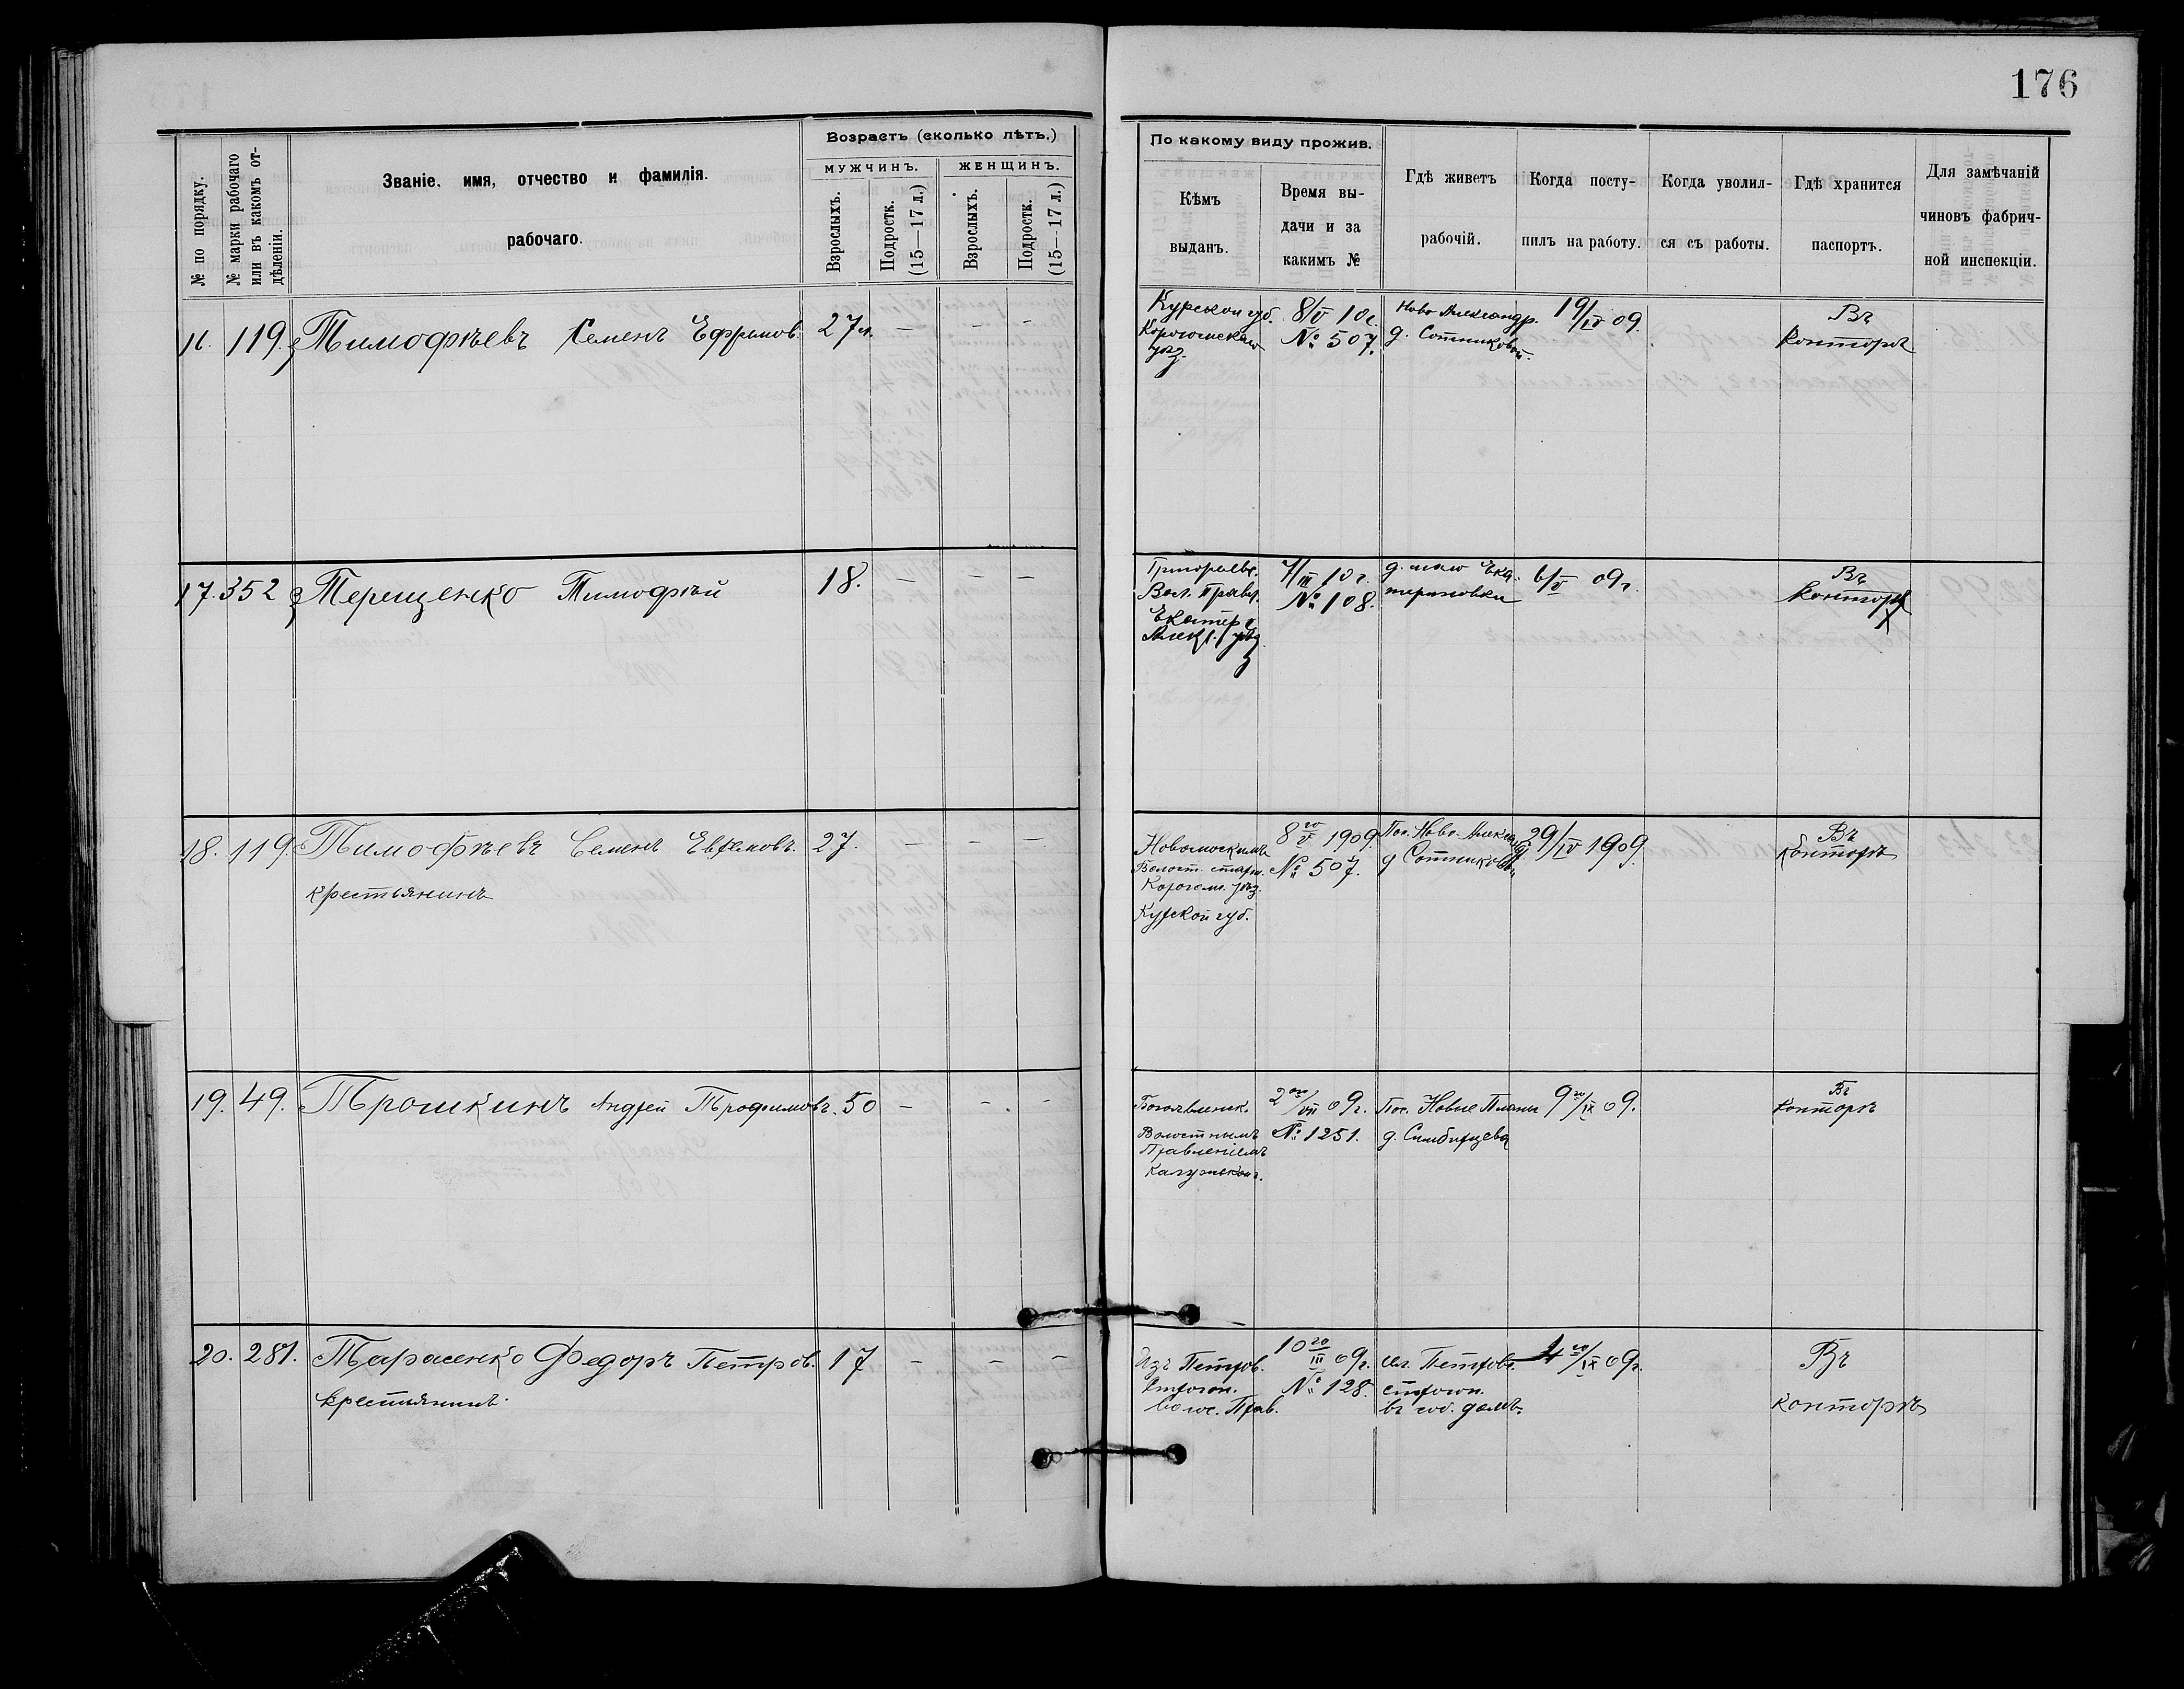 176
Возрастъ (сколько лѣтъ.)
МУЖЧИНЪ. ЖЕНЩИНЪ.
№ по порядку.
№ марки рабочаго или въ какомъ отдѣленіи.
Званіе, имя, отчество и фамилія.
рабочаго.
Взрослыхъ.
Подростк. (15—17 л.)
Взрослыхъ.
Подростк. (15—17 л.)
По какому виду прожив.
Кѣмъ
выданъ.
Время вы-
дачи и за
какимъ №
Гдѣ живетъ
рабочій.
Когда посту-
пилъ на работу.
Когда уволил-
ся съ работы.
Гдѣ хранится
паспортъ.
Для замѣчаній
чиновъ фабрич-
ной инспекціи.
16. 119. Тимофѣевъ Семенъ Ефримов. 27 л. — — —
Курской губ.
уѣз.
8/V 10 г.
№ 507.
Ново Александр.
д. Сотниковой.
19/IV 09.
Въ
Конторѣ
17. 352 Терещенко Тимофѣй 18. — — —
Григорьевс.
Вол. Правл.
Екатер. г.
Алекс. уѣзд
7/III 10 г.
№ 108.
д. Екатериновки
6/V 09 г.
Въ
Конторѣ
18. 119. Тимофѣевъ Семенъ 27. — — —
крестьянинъ
Волост. старш.
уѣз.
Курской губ.
8го/V 1909.
№ 507.
Пос. Ново-Алексан.
д Сотниковой
29/IV 1909.
Въ
конторѣ
19. 49. Трошкинъ Андрей Трофимовъ. 50 — — —
Богоявленск.
Волостнымъ
Правленіемъ
Калужской г.
2го/VII 09 г.
№ 1251.
Пос. Новые Планы
д. Симбирцева
9го/IX 09.
Въ
Конторѣ
20. 281. Тарасенко Федоръ Петров. 17 — — —
крестьянинъ.
Изъ Петров.
Волос. Прав.
10го/III 09 г.
№ 128.
сел. Петров.
въ соб. домѣ.
4го/IX 09 г.
Въ
конторѣ